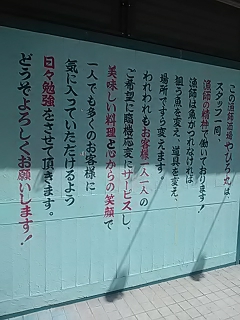 この漁師酒場 やひろ丸は、
スタッフ一同、
漁師の精神で働いております!
漁師は魚がつれなければ
狙う魚を変え、道具を変え、
場所ですら変えます。
われわれもお客様一人一人の
ご希望に臨機応変にサービスし、
美味しい料理と心からの笑顔で
一人でも多くのお客様に
気に入っていただけるよう
日々勉強をさせて頂きます。
どうぞよろしくお願いします!